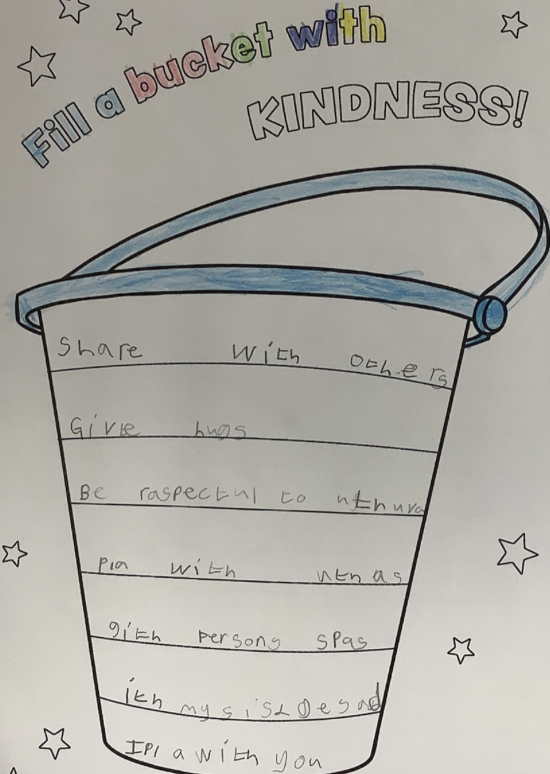 Fill a bucket with
KINDNESS!
Share with others
Give hugs
Be raspectul to uthura
pla with uthas
gith persong spas
ith my
Ipla with you